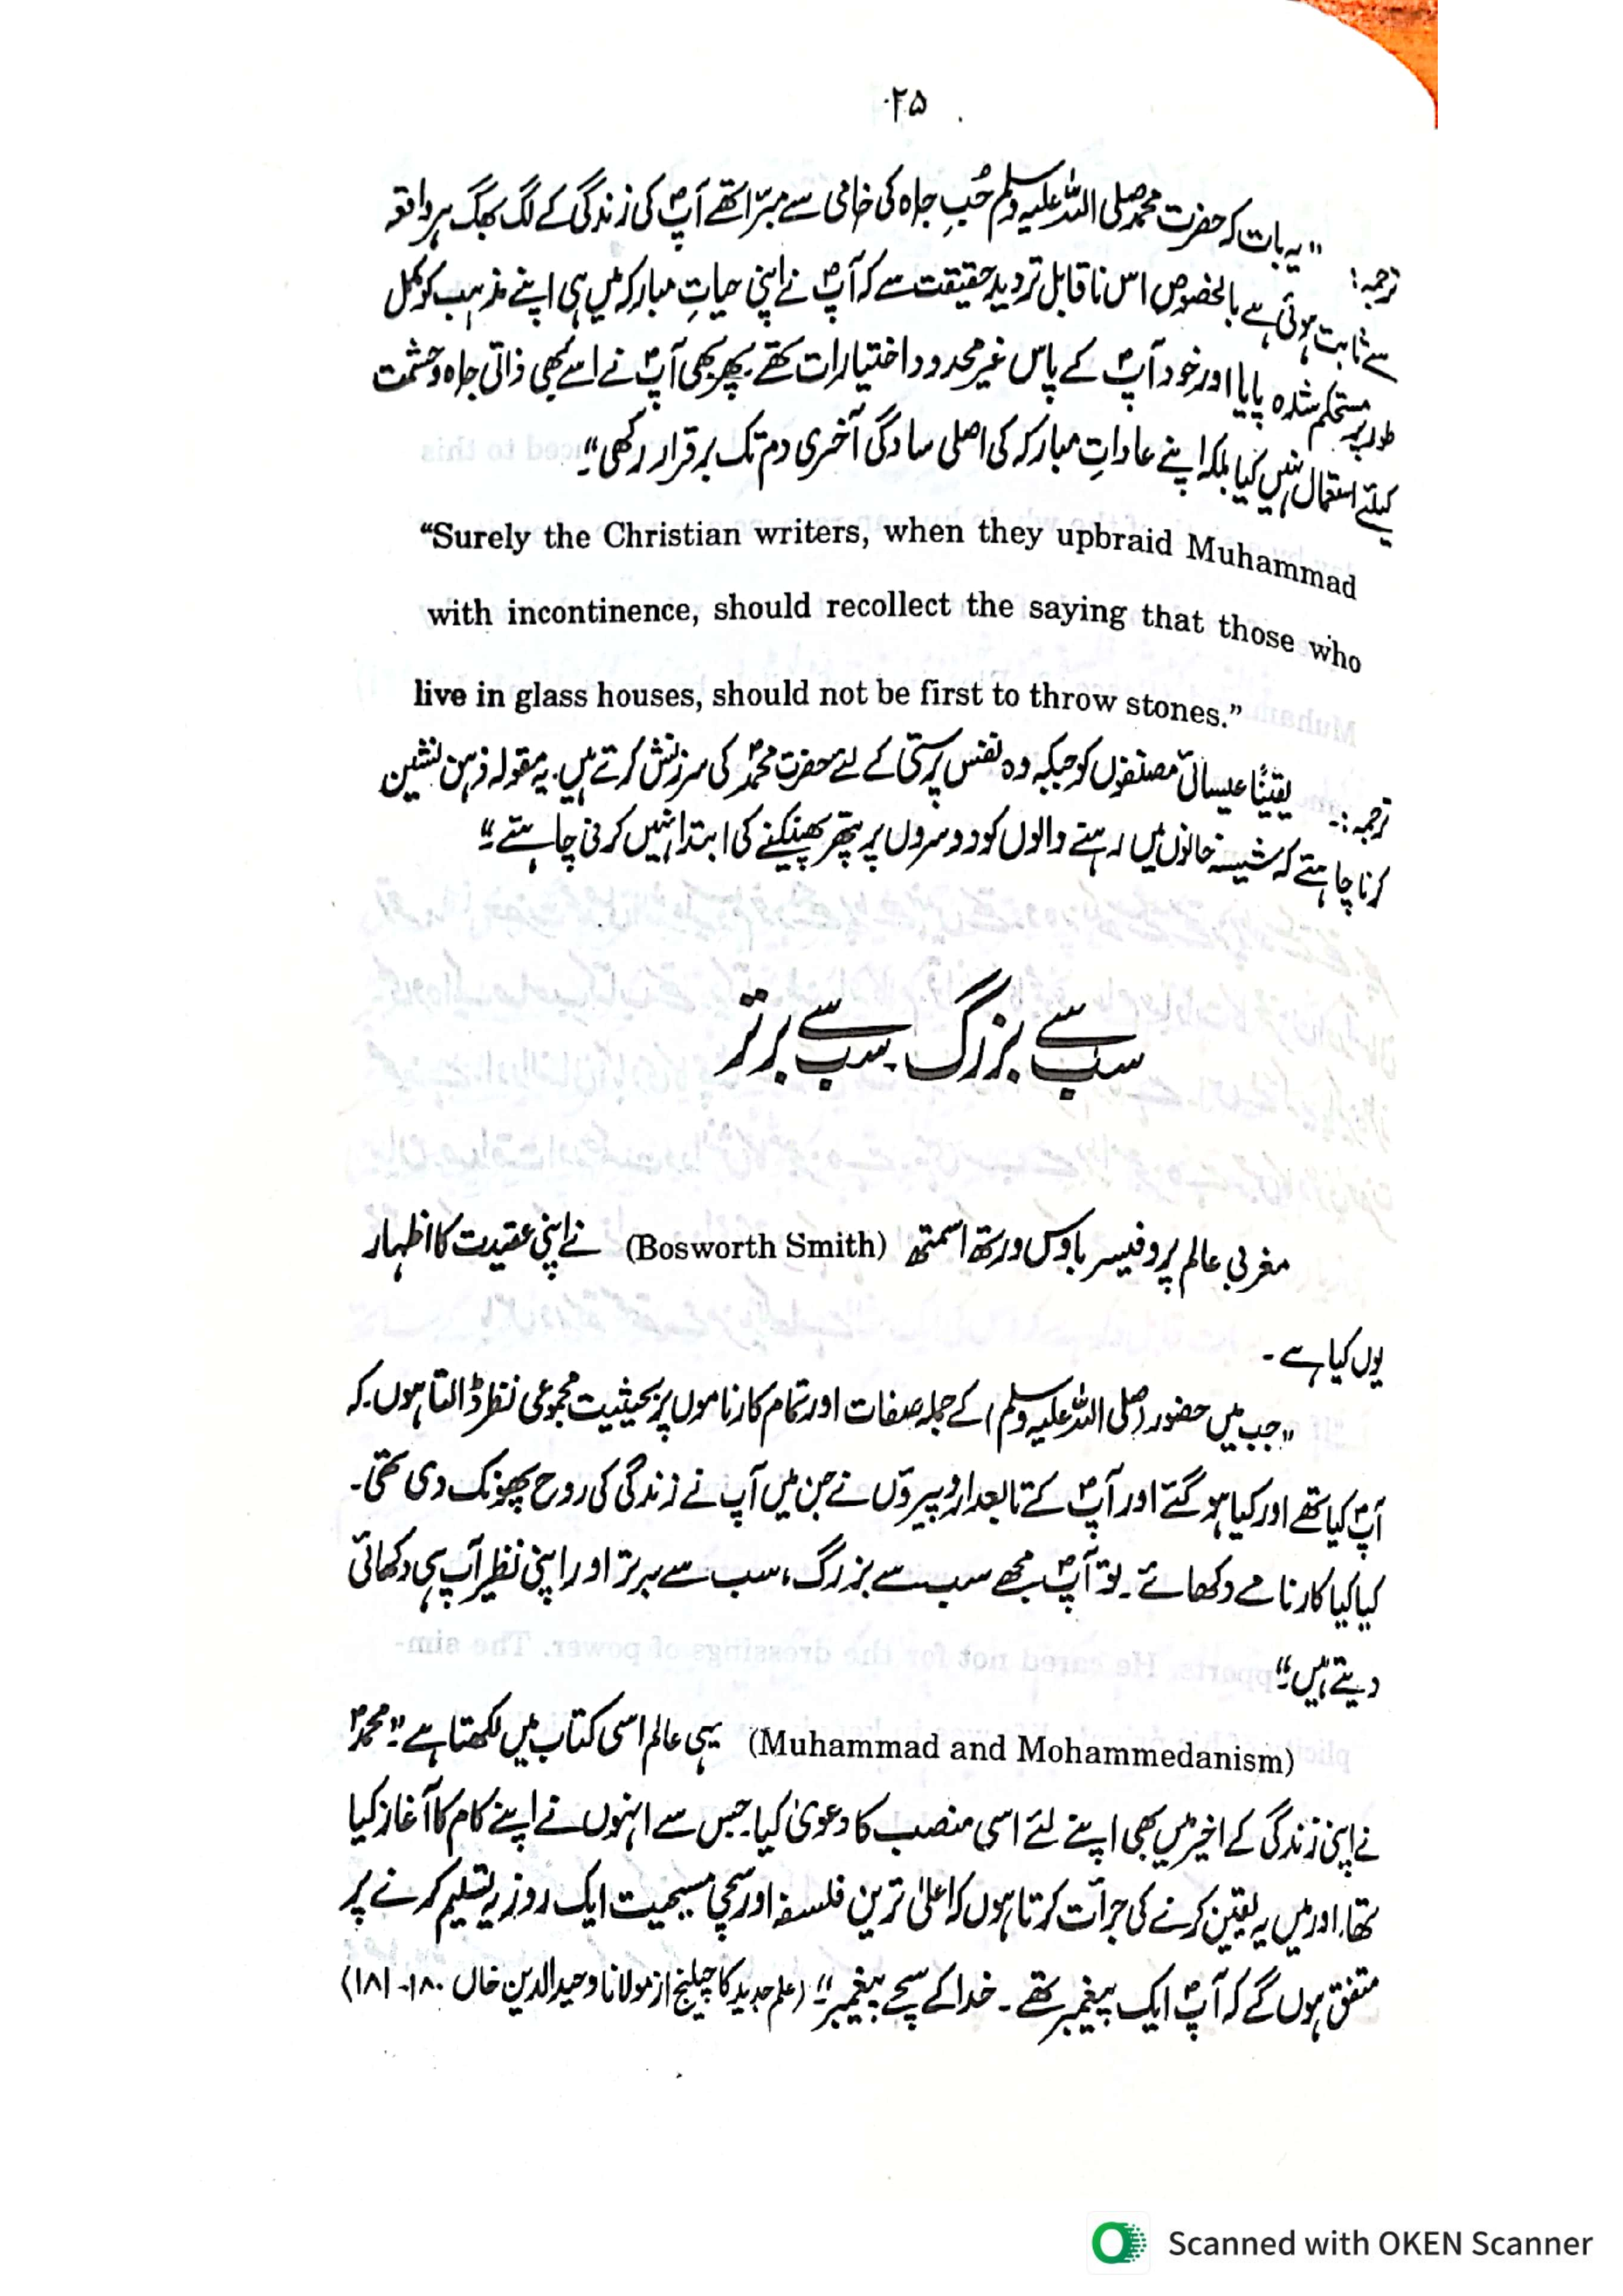 ۲۵
ترجمہ: "یہ بات کہ حضرت محمد صلی اللہ علیہ وسلم حُبِ جاہ کی خامی سے مبرّا تھے آپؐ کی زندگی کے لگ بھگ ہر واقعہ
سے ثابت ہوئی ہے بالخصوص اس ناقابل تردید حقیقت سے کہ آپؐ نے اپنی حیاتِ مبارکہ میں ہی اپنے مذہب کو مکمل
طور پر مستحکم شدہ پایا اور خود آپؐ کے پاس غیر محدود اختیارات تھے۔ پھر بھی آپؐ نے اسے کبھی ذاتی جاہ و حشمت
کیلئے استعمال نہیں کیا بلکہ اپنے عاداتِ مبارکہ کی اصلی سادگی آخری دم تک برقرار رکھی۔"
“Surely the Christian writers, when they upbraid Muhammad
with incontinence, should recollect the saying that those who
live in glass houses, should not be first to throw stones.”
ترجمہ:۔ یقیناً عیسائی مصنفوں کو جبکہ وہ نفس پرستی کے لئے حضرت محمدؐ کی سرزنش کرتے ہیں۔ یہ مقولہ ذہن نشین
کرنا چاہئے کہ شیشہ خانوں میں رہنے والوں کو دوسروں پر پتھر پھینکنے کی ابتدا نہیں کرنی چاہئے۔"
سب سے بزرگ۔ سب سے برتر
مغربی عالم پروفیسر باوس ورتھ اسمتھ (Bosworth Smith) نے اپنی عقیدت کا اظہار
یوں کیا ہے۔
"جب میں حضور (صلی اللہ علیہ وسلم) کے جملہ صفات اور تمام کارناموں پر بحیثیت مجموعی نظر ڈالتا ہوں۔ کہ
آپؐ کیا تھے اور کیا ہو گئے اور آپؐ کے تابعدار و پیروؤں نے جن میں آپ نے زندگی کی روح پھونک دی تھی۔
کیا کیا کارنامے دکھائے۔ تو آپؐ مجھے سب سے بزرگ، سب سے برتر اور اپنی نظیر آپ ہی دکھائی
دیتے ہیں۔"
(Muhammad and Mohammedanism) یہی عالم اسی کتاب میں لکھتا ہے "محمدؐ
نے اپنی زندگی کے اخیر میں بھی اپنے لئے اسی منصب کا دعویٰ کیا۔ جس سے انہوں نے اپنے کام کا آغاز کیا
تھا، اور میں یہ یقین کرنے کی جرأت کرتا ہوں کہ اعلیٰ ترین فلسفہ اور سچی مسیحیت ایک روز یہ تسلیم کرنے پر
متفق ہوں گے کہ آپؐ ایک پیغمبر تھے۔ خدا کے سچے پیغمبر۔" (علم جدید کا چیلنج از مولانا وحید الدین خاں ۱۸۰۔۱۸۱)
Scanned with OKEN Scanner